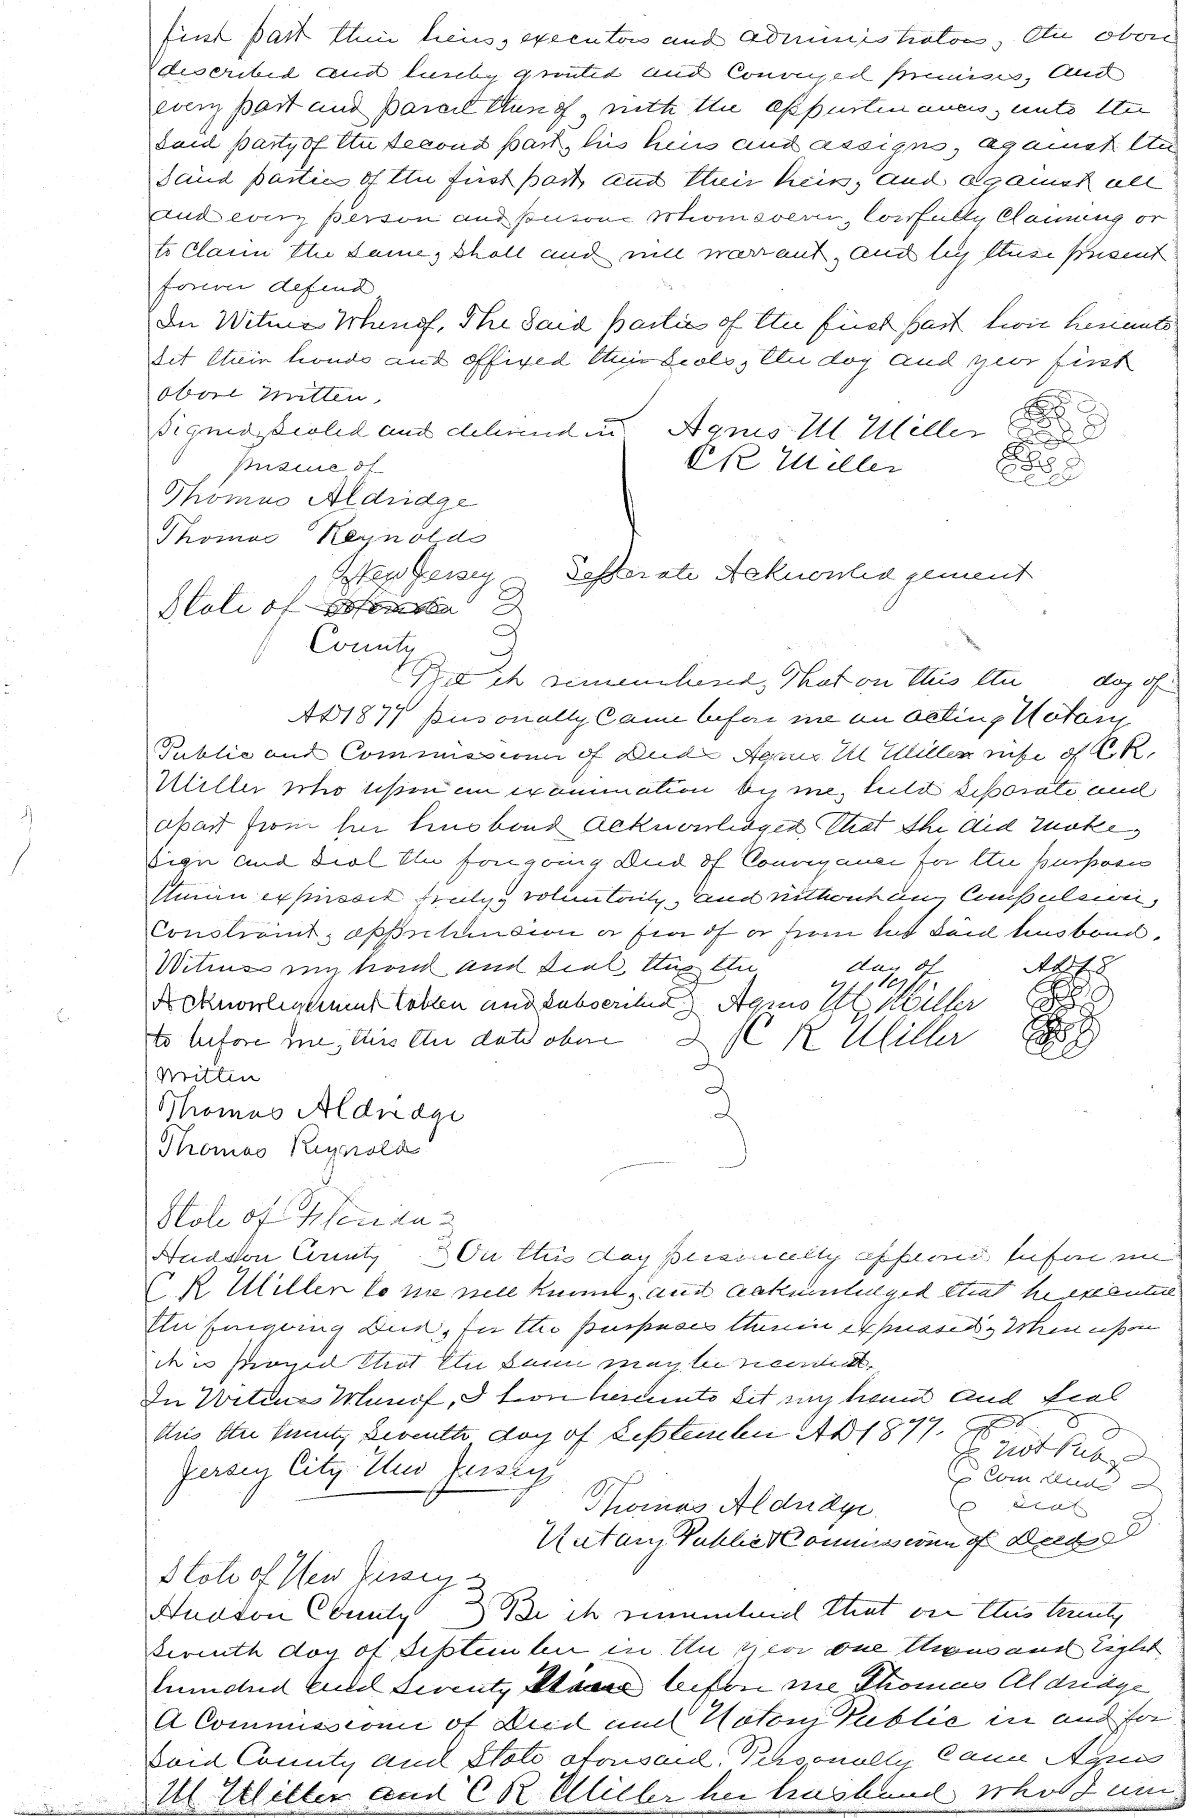 first part their heirs, executors and administrators, the above
described and hereby granted and Conveyed premises, and
every part and parcel thereof, with the appurtenances, unto the
said party of the second part, his heirs and assigns, against the
said parties of the first part, and their heirs, and against all
and every person and persons whomsoever, lawfully Claiming or
to Claim the same, shall and will warrant, and by these present
forever defend
In Witness Whereof, The Said parties of the first part have hereunto
set their hands and affixed their seals, the day and year first
above written.
Signed, Sealed and delivered in Agnes M Miller
presence of C R Miller
Thomas Aldridge
Thomas Reynolds
New Jersey Seperate Acknowledgement
State of
County
Be it remembered, That on this the day of
AD 1877 personally Came before me an acting Notary
Public and Commissioner of Deeds Agnes M Miller wife of C. R.
Miller who upon an examination by me, held separate and
apart from her husband acknowledged That She did make,
sign and seal the foregoing Deed of Conveyance for the purposes
therein expressed freely, voluntarily, and without any Compulsion,
Constraint, apprehension or fear of or from her said husband.
Witness my hand and seal, this the day of AD 18
Acknowledgement taken and subscribed Agnes M Miller
to before me, this the date above C R Miller
Written
Thomas Aldridge
Thomas Reynolds
State of Florida
Hudson County On this day personally appeared before me
C R Miller to me well known, and acknowledged that he executed
the foregoing Deed, for the purposes therein expressed, Whereupon
it is prayed that the same may be recorded.
In Witness Whereof, I have hereunto set my hand and seal
this the twenty Seventh day of September AD 1877.
Not Pub
Jersey City New Jersey Com Deeds
Thomas Aldridge seal
Notary Public & Commissioner of Deeds
State of New Jersey
Hudson County Be it remembered that on this twenty
seventh day of September in the year one thousand Eight
hundred and seventy before me Thomas Aldridge
A Commissioner of Deed and Notary Public in and for
said County and State aforesaid. Personally Came Agnes
M Miller and C R Miller her husband who I am